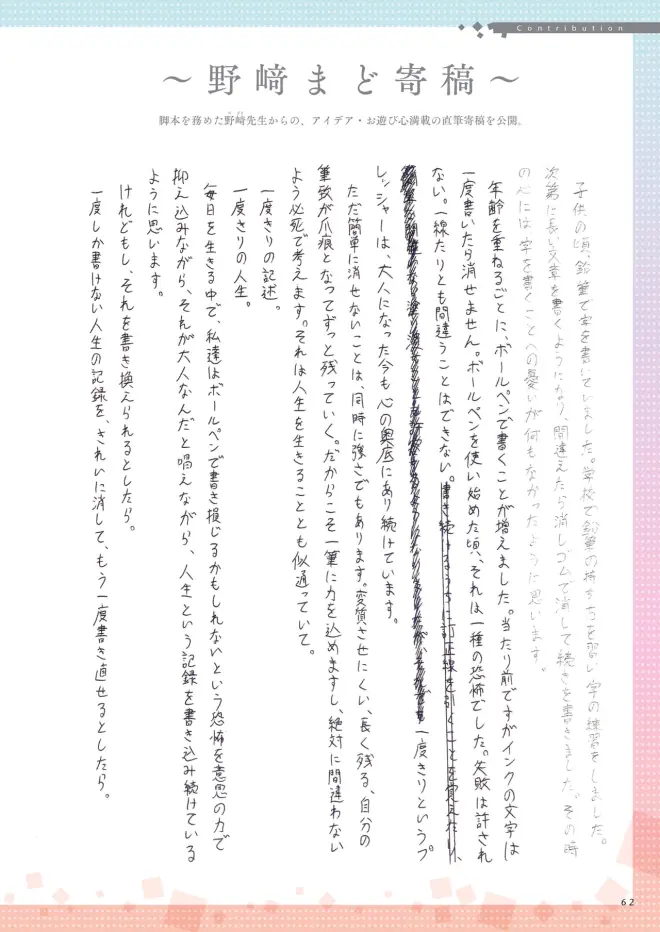 Contribution
～野﨑まど寄稿～
脚本を務めた野﨑先生からの、アイデア・お遊び心満載の直筆寄稿を公開。
子供の頃、鉛筆で字を書いていました。学校で鉛筆の持ち方を習い、字の練習をしました。
次第に長い文章を書くようになり、間違えたら消しゴムで消して続きを書きました。その時
の心には字を書くことへの憂いが何もなかったように思います。
年齢を重ねるごとに、ボールペンで書くことが増えました。当たり前ですがインクの文字は
一度書いたら消せません。ボールペンを使い始めた頃、それは一種の恐怖でした。失敗は許され
ない。一線たりとも間違うことはできない。書き続けるうちに訂正線を引くことを覚えたり、
一度きりというプ
レッシャーは、大人になった今も心の奥底にあり続けています。
ただ簡単に消せないことは、同時に強さでもあります。変質させにくい、長く残る、自分の
筆致が爪痕となってずっと残っていく。だからこそ一筆に力を込めますし、絶対に間違わない
よう必死で考えます。それは人生を生きることとも似通っていて。
一度きりの記述。
一度きりの人生。
毎日を生きる中で、私達はボールペンで書き損じるかもしれないという恐怖を意思の力で
抑え込みながら、それが大人なんだと唱えながら、人生という記録を書き込み続けている
ように思います。
けれどもし、それを書き換えられるとしたら。
一度しか書けない人生の記録を、きれいに消して、もう一度書き直せるとしたら。
62